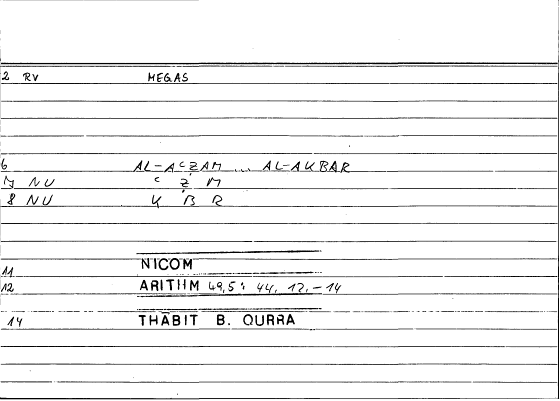 2 RV MEGAS
6 AL-AʿẒAM ... AL-AKBAR
7 NU ʿ Ẓ M
8 NU K B R
11 NICOM
12 ARITHM 49,5: 44, 12.-14
14 THĀBIT B. QURRA